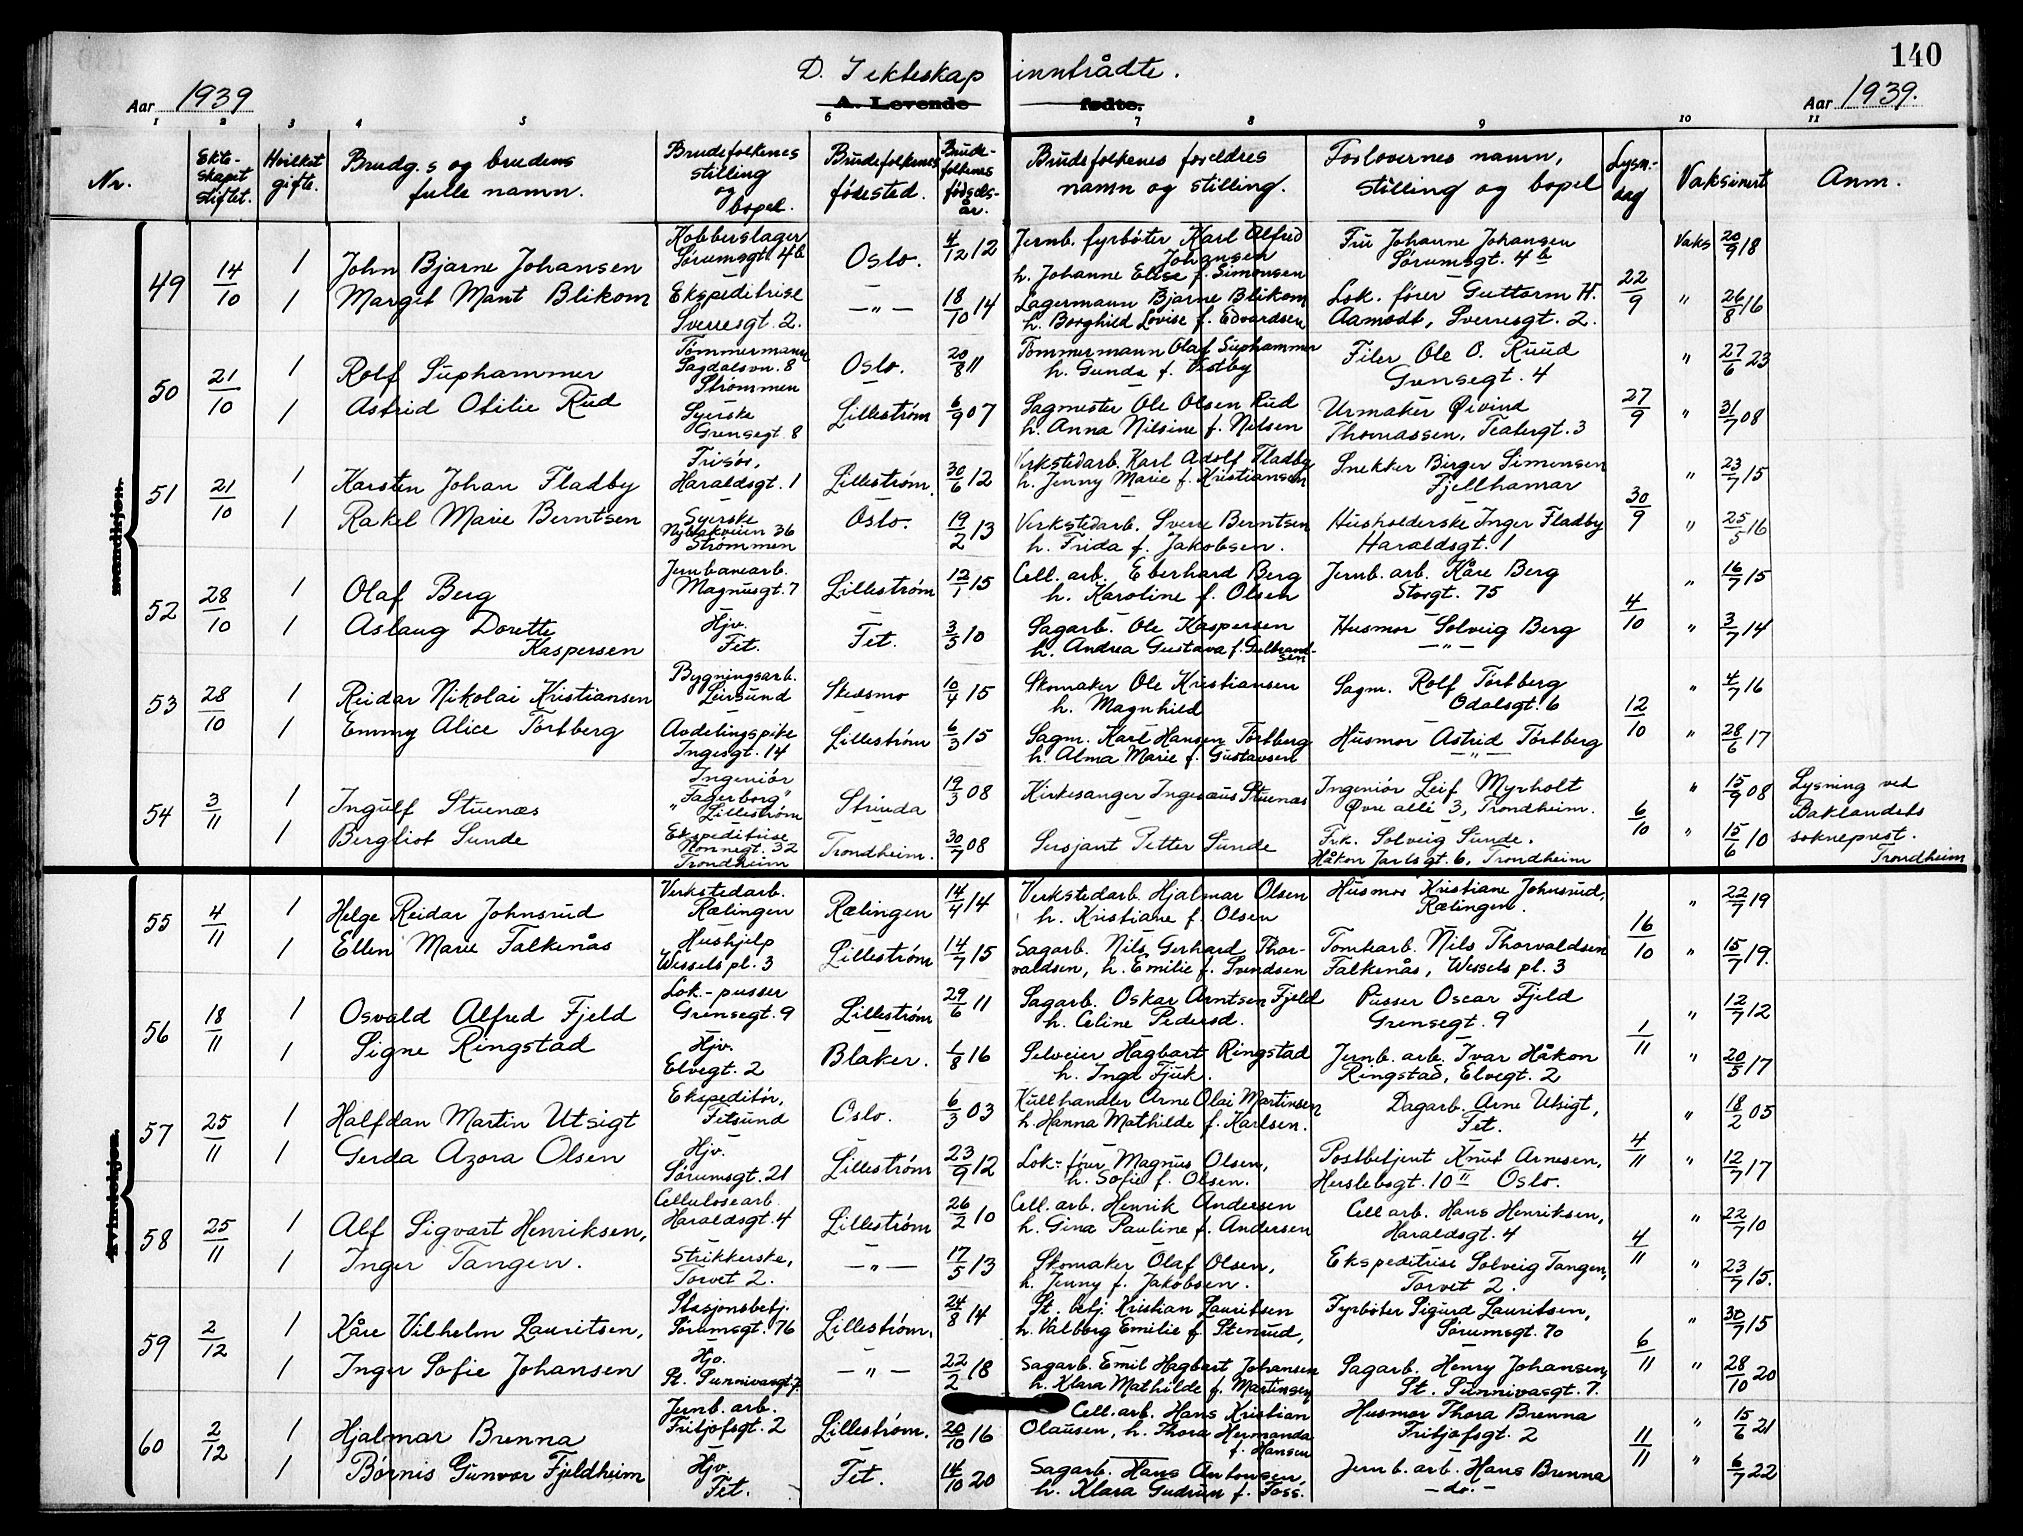 140
D. I ekteskap inntrådte.
Aar 1939
A. Levende fødte.
Aar 1939.
1 2 3 4 5 6 7 8 9 10 11
Nr. Ekte-skapet stiftet. Hvilket gifte. Brudg.s og brudens fulle namn. Brudefolkenes stilling og bopel. Brudefolkenes fødested. Brude-folkenes fødsels-år. Brudefolkenes foreldres namn og stilling. Forlovernes namn, stilling og bopel Lysn-dag Vaksinert Anm.
mandkjøn.
49 14/10 1 John Bjarne Johansen Kobberslager Sørumsgt. 4b Oslo. 4/12 12 Jernb. fyrbøter Karl Alfred Johansen h. Johanne Elise f. Simonsen Fru Johanne Johansen Sørumsgt. 4b 22/9 Vaks 20/9 18
1 Margit Mant Blikom Ekspeditrise Sverresgt. 2. —"— 18/10 14 Lagermann Bjarne Blikom h. Borghild Lovise f. Edvardsen Lok. fører Guttorm H. Aamodt, Sverresgt. 2. " 26/8 16
50 21/10 1 Rolf Suphammer Tømmermann Sagdalsvn. 8 Strømmen Oslo. 20/8 11 Tømmermann Olaf Suphammer h. Gunda f. Vestby Filer Ole O. Ruud Grensegt. 4 27/9 " 27/6 23
1 Astrid Otilie Rud Syerske Grensegt. 8 Lillestrøm 6/9 07 Sagmester Ole Olsen Rud h. Anna Nilsine f. Nilsen Urmaker Øivind Thomassen, Teatergt. 3 " 31/7 08
51 21/10 1 Karsten Johan Fladby Frisør, Haraldsgt. 1 Lillestrøm. 30/6 12 Verkstedarb. Karl Adolf Fladby h. Jenny Marie f. Kristiansen Snekker Birger Simensen Fjellhamar 30/9 " 23/7 15
1 Rakel Marie Berntsen Syerske Nybakveien 36 Strømmen Oslo. 19/2 13 Verkstedarb. Sverre Berntsen h. Frida f. Jakobsen. Husholderske Inger Fladby Haraldsgt. 1 " 25/5 16
52 28/10 1 Olaf Berg Jernbanearb. Magnusgt. 7 Lillestrøm 12/1 15 Cell. arb. Eberhard Berg h. Karoline f. Olsen Jernb. arb. Kåre Berg Storgt. 75 4/10 " 16/7 15
1 Aslaug Dorette Kaspersen Hjv. Fet. Fet. 3/5 10 Sagarb. Ole Kaspersen h. Andrea Gustava f. Gulbrand-sen Husmor Solveig Berg —"— " 3/7 14
53 28/10 1 Reidar Nikolai Kristiansen Bygningsarb. Leirsund Skedsmo 10/4 15 Skomaker Ole Kristiansen h. Magnhild Sagm. Rolf Tortberg Odalsgt. 6 12/10 " 4/7 16
1 Emmy Alice Tortberg Avdelingspike Ingesgt. 14 Lillestrøm 6/3 15 Sagm. Karl Hansen Tortberg h. Alma Marie f. Gustavsen Husmor Astrid Tortberg —"— " 28/6 17
54 3/11 1 Ingulf Stuenæs Ingeniør "Fagerborg" Lillestrøm Strinda 19/3 08 Kirkesanger Ingeæus Stuenæs Ingeniør Leif Myrholt Øvre allé 3, Trondheim. 6/10 " 15/9 08 Lysning ved Baklandets sokneprest. Trondheim
1 Bergliot Sunde Ekspeditrise Nonnegt. 32 Trondheim Trondheim. 30/7 08 Sersjant Petter Sunde Frk. Solveig Sunde, Håkon Jarlsgt. 6, Trondheim " 15/6 10
Kvindekjøn.
55 4/11 1 Helge Reidar Johnsrud Verkstedarb. Rælingen Rælingen 14/4 14 Verkstedarb. Hjalmar Olsen h. Kristiane f. Olsen Husmor Kristiane Johnsrud, Rælingen. 16/10 " 22/7 19
1 Ellen Marie Falkenås Hushjelp Wessels pl. 3 Lillestrøm 14/7 15 Sagarb. Nils Gerhard Thor-valdsen, h. Emilie f. Svendsen Tomtearb. Nils Thorvaldsen Falkenås, Wessels pl. 3 " 15/7 19.
56 18/11 1 Osvald Alfred Fjeld Lok.-pusser Grensegt. 9 Lillestrøm 29/6 11 Sagarb. Oskar Arntsen Fjeld h. Celine Pedersd. Pusser Oscar Fjeld Grensegt. 9 1/11 " 12/7 12
1 Signe Ringstad Hjv. Elvegt. 2 Blaker. 1/8 16 Selveier Hagbart Ringstad h. Inga Fjuk. Jernb. arb. Ivar Håkon Ringstad, Elvegt. 2 " 20/5 17
57 25/11 1 Halfdan Martin Utsigt Ekspeditør, Fetsund Oslo. 6/3 03 Kullhandler Arne Olai Martinsen h. Hanna Mathilde f. Karlsen. Dagarb. Arne Utsigt, Fet. 4/11 " 18/2 05
1 Gerda Azora Olsen Hjv. Sørumsgt. 21 Lillestrøm 23/9 12 Lok-fører Magnus Olsen, h. Sofie f. Olsen. Postbetjent Knut Arnesen, Herslebsgt. 10 II Oslo. " 12/7 17
58 25/11 1 Alf Sigvart Henriksen, Cellulosearb Haraldsgt. 4 Lillestrøm 26/2 10 Cell. arb. Henrik Andersen h. Gina Pauline f. Andersen Cell arb. Hans Henriksen, Haraldsgt. 4 4/11 " 22/7 10
1 Inger Tangen. Strikkerske, Torvet 2. —"— 17/5 13 Skomaker Olaf Olsen, h. Jenny f. Jakobsen. Ekspeditrise Solveig Tangen, Torvet 2. " 23/7 15.
59 2/12 1 Kåre Vilhelm Lauritsen, Stasjonsbetj. Sørumsgt. 76 Lillestrøm. 24/8 14 St. betj. Kristian Lauritsen h. Valborg Emilie f. Stenrud, Fyrbøter Sigurd Lauritsen, Sørumsgt. 70 6/11 " 30/7 15
1 Inger Sofie Johansen Hjv. St. Sunnivasgt. 7. —"— 22/2 18 Sagarb. Emil Hagbart Johansen h. Klara Mathilde f. Martinsen Sagarb. Henry Johansen, St. Sunnivasgt. 7. " 28/10 20
60 2/12 1 Hjalmar Brenna Jernb. arb. Fritjofsgt. 2 Lillestrøm. 20/10 16 Cell. arb. Hans Kristian Olausen, h. Thora Hermanda f. Hansen Husmor Thora Brenna Fritjofsgt. 2 11/11 " 15/6 21
1 Børnis Gunvor Fjeldheim Hjv. Fet. Fet. 14/10 20 Sagarb. Hans Antonsen, h. Klara Gudrun f. Foss. Jernb. arb. Hans Brenna —do.— " 6/7 22